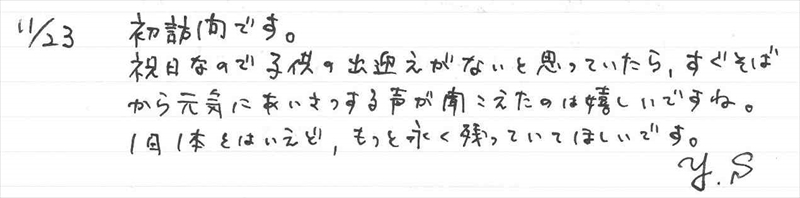 11/23 初訪問です。
祝日なので子供の出迎えがないと思っていたら、すぐそば
から元気にあいさつする声が聞こえたのは嬉しいですね。
1日1本とはいえど、もっと永く残っていてほしいです。
Y.S